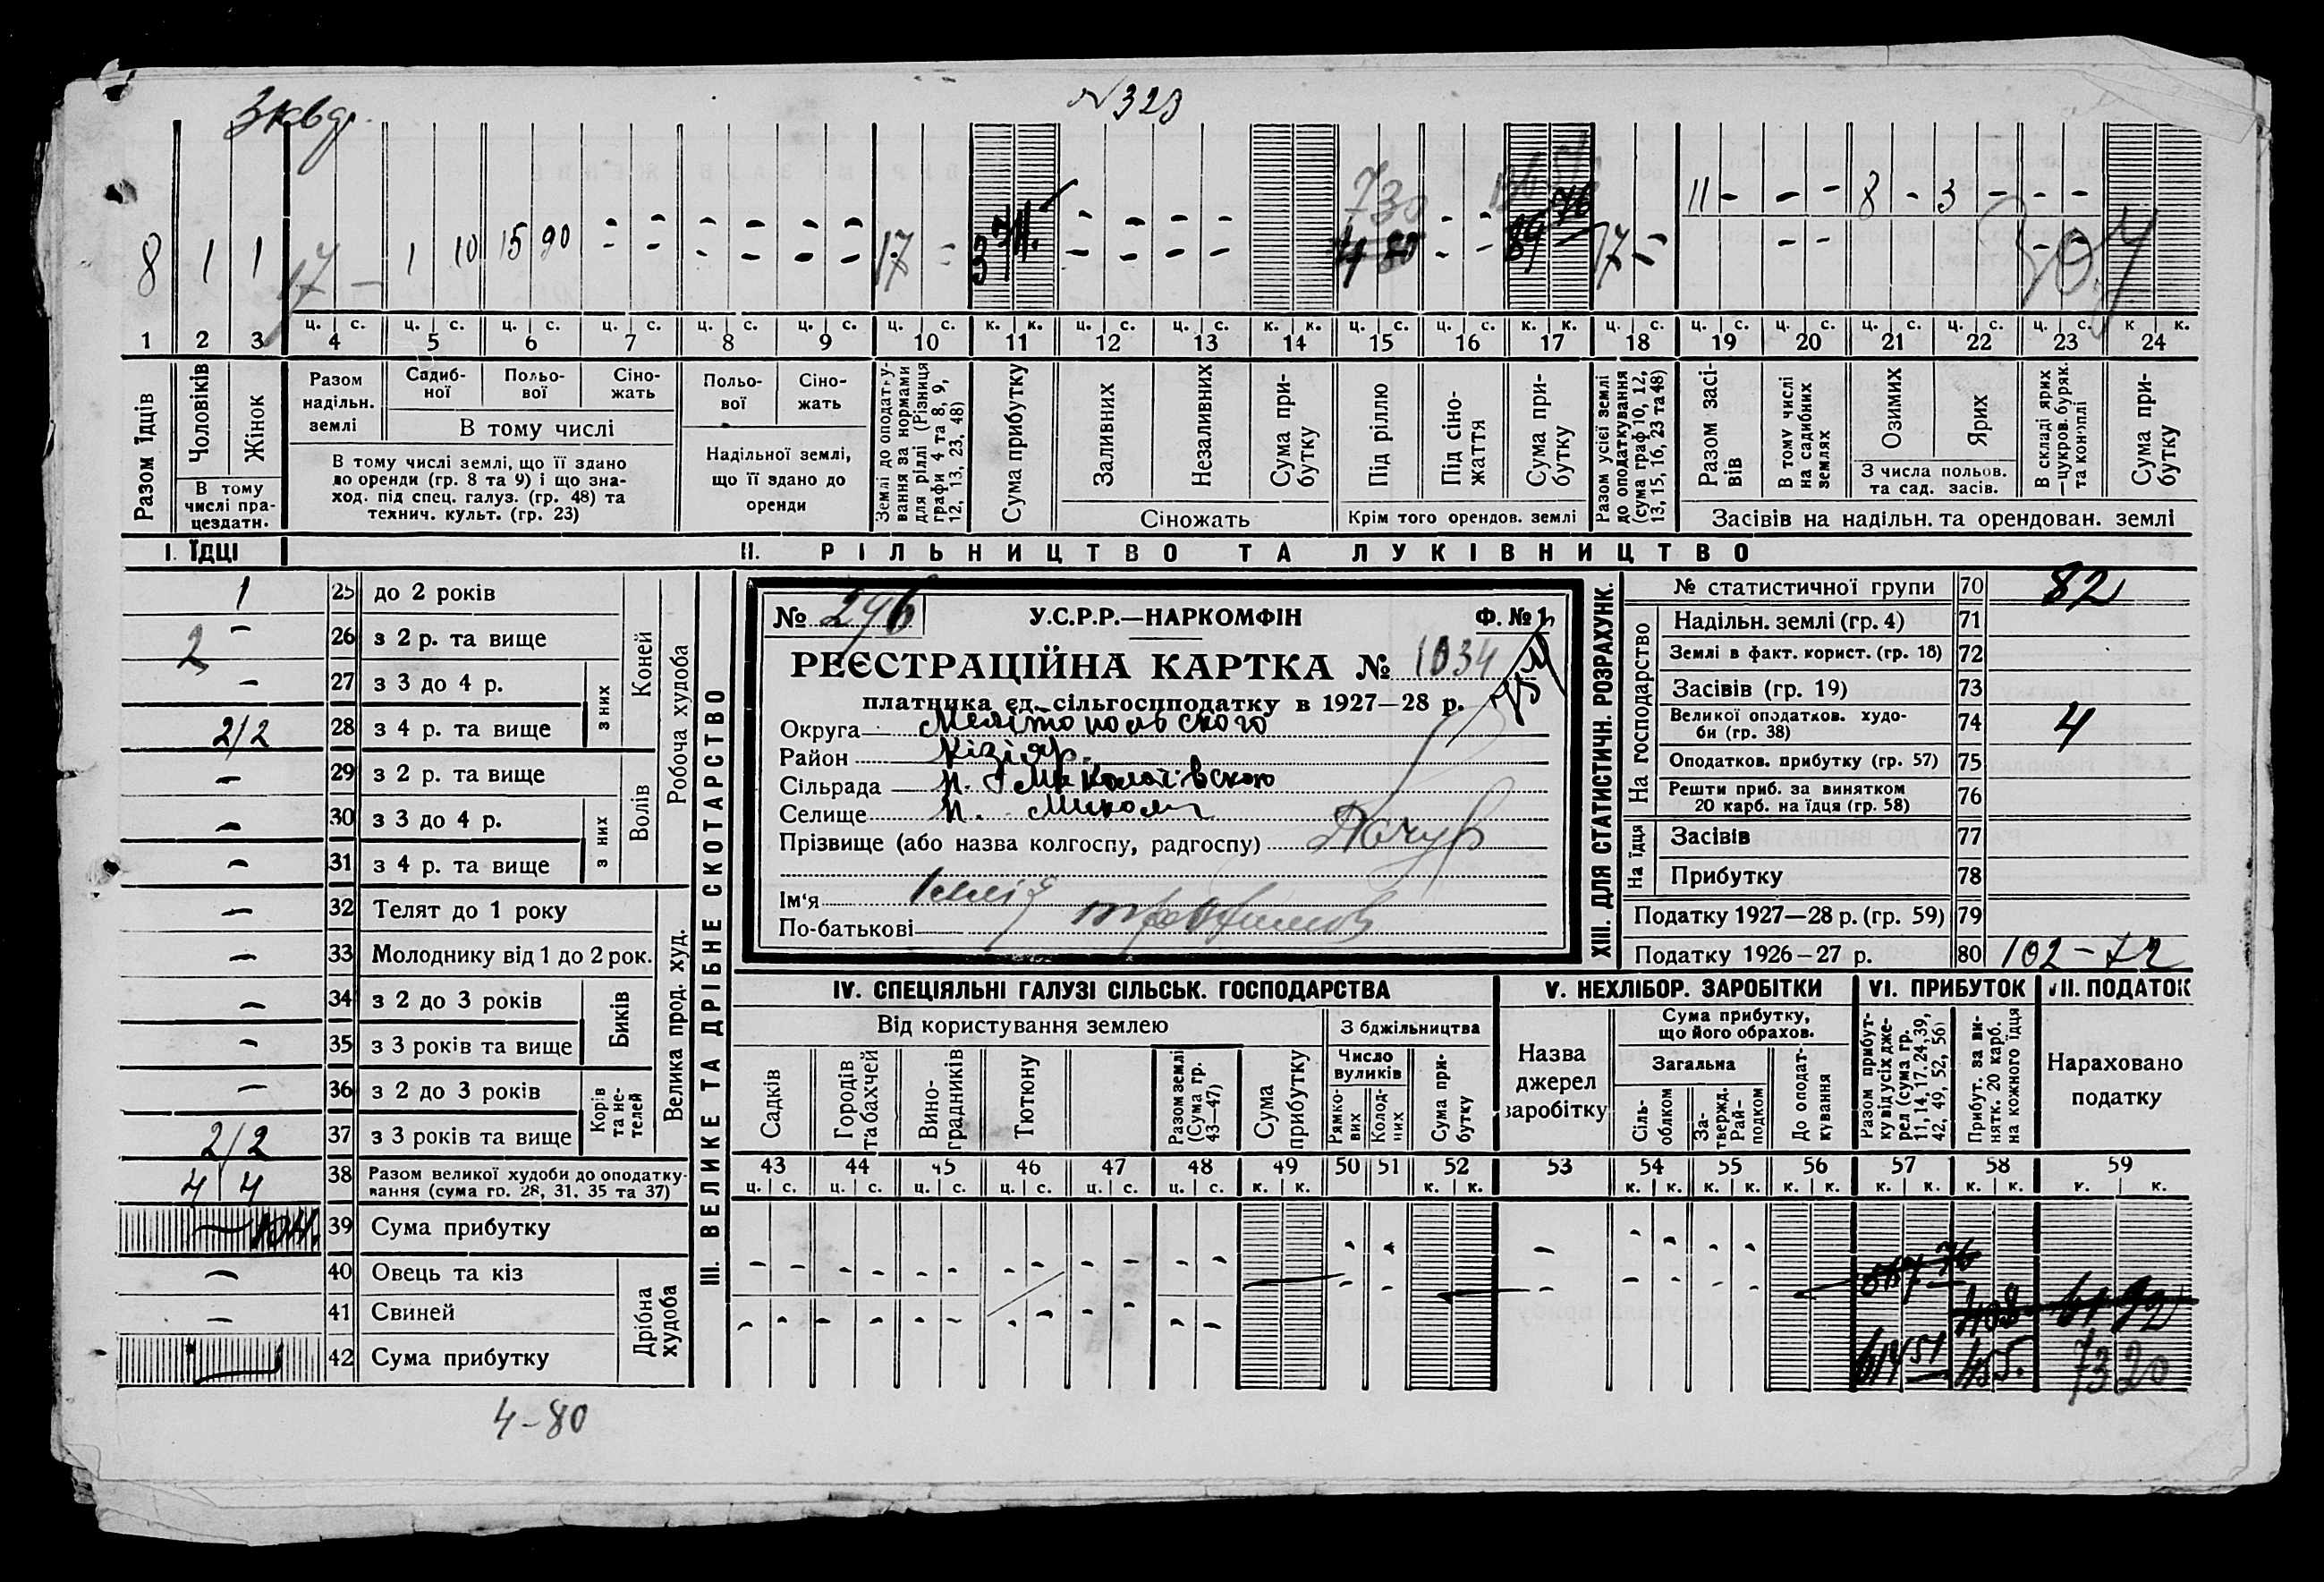 3 квар.
№ 323
730
136 51
11 - - - 8 - 3 - - -
8 1 1 17 - 1 10 15 90 - - - - - - 17 - - - - - 4 80 - - 89 76 17 - - - - -
ц. с. ц. с. ц. с. ц. с. ц. с. ц. с. ц. с. к. к. ц. с. ц. с. к. к. ц. с. ц. с. к. к. ц. с. ц. с. ц. с. ц. с. ц. с. ц. с. к к.
1 2 3 4 5 6 7 8 9 10 11 12 13 14 15 16 17 18 19 20 21 22 23 24
Разом їдців
Чоловіків
Жінок
В тому числі працездатн.
Разом надільн. землі
Садибної
Польової
Сіножать
В тому числі
В тому числі землі, що її здано
до оренди (гр. 8 та 9) і що зна-
ход. під спец. галуз. (гр. 48) та
технич. культ. (гр. 23)
Польової
Сіножать
Надільної землі,
що її здано до
оренди
Землі до оподатку-
вання за нормами
для ріллі (Різниця
графи 4 та 8, 9,
12, 13, 23, 48)
Сума прибутку
Заливних
Незаливних
Сума прибутку
Сіножать
Під ріллю
Під сіножаття
Сума прибутку
Крім того орендов. землі
Разом усієї землі
до оподаткування
(сума граф 10, 12,
13, 15, 16, 23 та 48)
Разом засівів
В тому числі
на садибних
землях
Озимих
Ярих
З числа польов.
та сад. засів.
В складі ярих
—цукров. буряк.
та коноплі
Сума прибутку
Засівів на надільн. та орендован. землі
I. ЇДЦІ
II. РІЛЬНИЦТВО ТА ЛУКІВНИЦТВО
1 25 до 2 років
2 - 26 з 2 р. та вище
- 27 з 3 до 4 р.
2/2 28 з 4 р. та вище
з них
Коней
- 29 з 2 р. та вище
- 30 з 3 до 4 р.
- 31 з 4 р. та вище
з них
Волів
Робоча худоба
- 32 Телят до 1 року
- 33 Молоднику від 1 до 2 рок.
- 34 з 2 до 3 років
- 35 з 3 років та вище
Биків
- 36 з 2 до 3 років
2/2 37 з 3 років та вище
Корів та не-телей
Велика прод. худ.
4 4 38 Разом великої худоби до оподатку-
вання (сума гр. 28, 31, 35 та 37)
39 Сума прибутку
- 40 Овець та кіз
- 41 Свиней
42 Сума прибутку
Дрібна худоба
III. ВЕЛИКЕ ТА ДРІБНЕ СКОТАРСТВО
4-80
№ 296 У.С.Р.Р.—НАРКОМФІН Ф. № 1
РЕЄСТРАЦІЙНА КАРТКА № 1034
платника єд. сільгоспподатку в 1927—28 р.
Округа Мелітопольского
Район Кізіяр.
Сільрада Н. Миколаівского
Селище Н. Микол
Прізвище (або назва колгоспу, радгоспу)
Ім'я
По-батькові Трофимов
XIII. ДЛЯ СТАТИСТИЧН. РОЗРАХУНК.
№ статистичної групи 70 82
На господарство
Надільн. землі (гр. 4) 71
Землі в факт. корист. (гр. 18) 72
Засівів (гр. 19) 73
Великої оподатков. худо-
би (гр. 38) 74 4
Оподатков. прибутку (гр. 57) 75
Решти приб. за винятком
20 карб. на їдця (гр. 58) 76
На їдця
Засівів 77
Прибутку 78
Податку 1927—28 р. (гр. 59) 79
Податку 1926—27 р. 80 102-72
IV. СПЕЦІЯЛЬНІ ГАЛУЗІ СІЛЬСЬК. ГОСПОДАРСТВА
Від користування землею
З бджільництва
Садків
Городів та бахчей
Виноградників
Тютюну
Разом землі
(Сума гр.
43—47)
Сума прибутку
Число вуликів
Рямкових
Колодних
Сума прибутку
V. НЕХЛІБОР. ЗАРОБІТКИ
Назва
джерел
заробітку
Сума прибутку,
що його обрахов.
Загальна
Сільоблком
Затвердж. Райподком
До оподаткування
VI. ПРИБУТОК
Разом прибут-
ку від усіх дже-
рел (сума гр.
11, 14, 17, 24, 39,
42, 49, 52, 56)
Прибут. за ви-
нятк. 20 карб.
на кожного їдця
VII. ПОДАТОК
Нараховано
податку
43 44 45 46 47 48 49 50 51 52 53 54 55 56 57 58 59
ц. с. ц. с. ц. с. ц. с. ц. с. ц. с. к. к. к. к. к. к. к. к. к. к. к. к. к. к. к. к.
567 76
408 61 92
614 51 455. 73 20